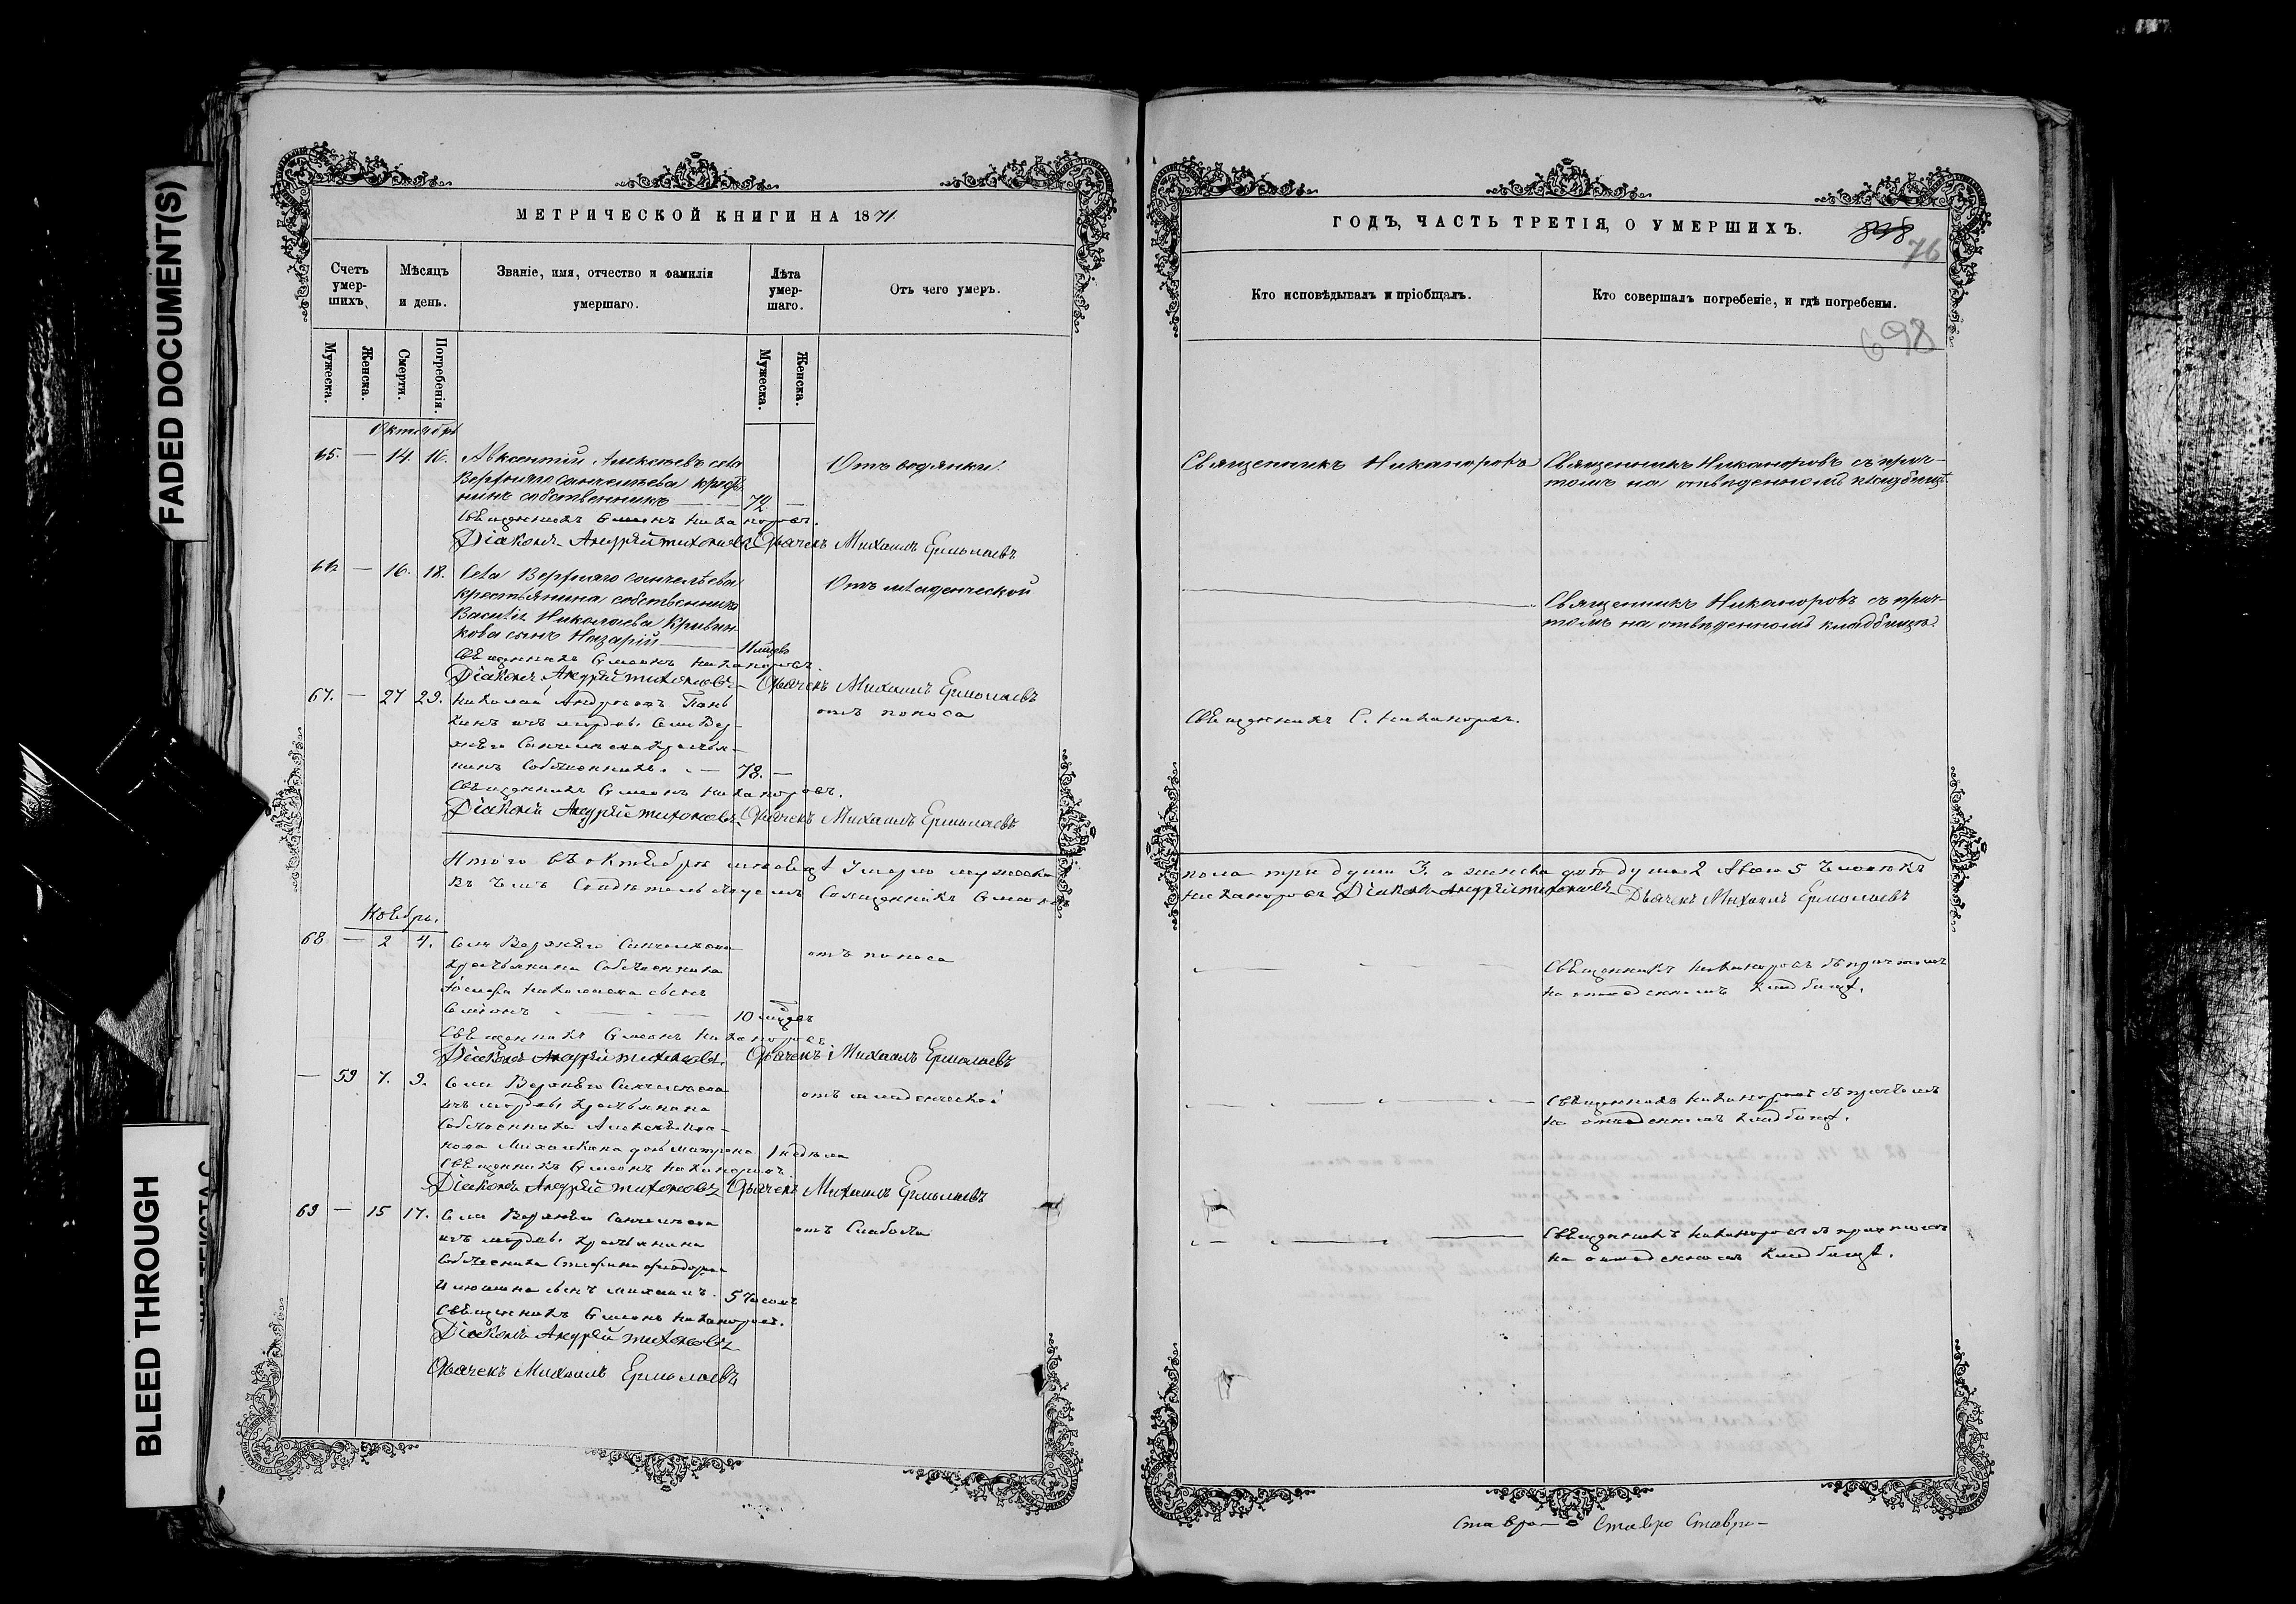 FADED DOCUMENT(S)
BLEED THROUGH
МЕТРИЧЕСКОЙ КНИГИ НА 1871
Счетъ умер-шихъ.
Мѣсяцъ и день.
Званіе, имя, отчество и фамилія умершаго.
Лѣта умер-шаго.
Отъ чего умеръ.
Мужеска.
Женска.
Смерти.
Погребенія.
Мужеска.
Женска.
Октябрь
65. — 14. 16. Авксентій Алексѣевъ села
Верхняго Санчелѣева крестья
нинъ собственникъ — 72 —
Отъ водянки.
Священникъ Симеонъ Никаноровъ.
Діаконъ Андрей Тихоновъ Дьячекъ Михаилъ Ермолаевъ
66 — 16. 18. Села Верхняго Санчелѣева
крестьянина собственника
Василія Николаева Кривин-
кова сынъ Назарій — 11 мѣсяц.
Отъ младенческой
Священникъ Симеонъ Никаноровъ.
Діаконъ Андрей Тихоновъ — Дьячекъ Михаилъ Ермолаевъ
67. — 27 29. Николай Андреевъ Пань
кинъ изъ мордвы села Вер-
хняго Санчелѣева крестья-
нинъ собственникъ. — 78. —
отъ поноса
Священникъ Симеонъ Никаноровъ.
Діаконъ Андрей Тихоновъ Дьячекъ Михаилъ Ермолаевъ
Итого въ октябрѣ мѣсяцѣ умерло мужеска
въ чемъ свидѣтельствуемъ Священникъ Симеонъ
Ноябрь.
68 — 2 4. Села Верхняго Санчелѣева
крестьянина собственника
Іосифа Николаева сынъ
Симеонъ — 10 мѣсяц.
отъ поноса
Священникъ Симеонъ Никаноровъ
Діаконъ Андрей Тихоновъ. Дьячекъ Михаилъ Ермолаевъ
— 59 7. 9. Села Верхняго Санчелѣева
изъ мордвы крестьянина
собственника
дочь Матрона 1 недѣля
отъ младенческой
Священникъ Симеонъ Никаноровъ
Діаконъ Андрей Тихоновъ Дьячекъ Михаилъ Ермолаевъ
69 — 15 17. Села Верхняго Санчелѣева
изъ мордвы крестьянина
собственника Стефана Федорова
Илюшина сынъ Михаилъ. 5 часовъ
отъ слабости
Священникъ Симеонъ Никаноровъ.
Діаконъ Андрей Тихоновъ
Дьячекъ Михаилъ Ермолаевъ
ГОДЪ, ЧАСТЬ ТРЕТІЯ, О УМЕРШИХЪ.
76
698
Кто исповѣдывалъ и пріобщалъ.
Кто совершалъ погребеніе, и гдѣ погребены.
Священникъ Никаноровъ
Священникъ Никаноровъ съ прич-
томъ на отведенномъ кладбищѣ
Священникъ Никаноровъ съ прич-
томъ на отведенномъ кладбищѣ.
Священникъ С. Никаноровъ.
пола три души 3. а женска двѣ души 2 Всего 5 человѣкъ
Никаноровъ Діаконъ Андрей Тихоновъ Дьячекъ Михаилъ Ермолаевъ
Священникъ Никаноровъ съ причтомъ
на отведенномъ кладбищѣ.
Священникъ Никаноровъ съ причтомъ
на отведенномъ кладбищѣ.
Священникъ Никаноровъ съ причтомъ
на отведенномъ кладбищѣ.
Ставро— Ставро Ставро—